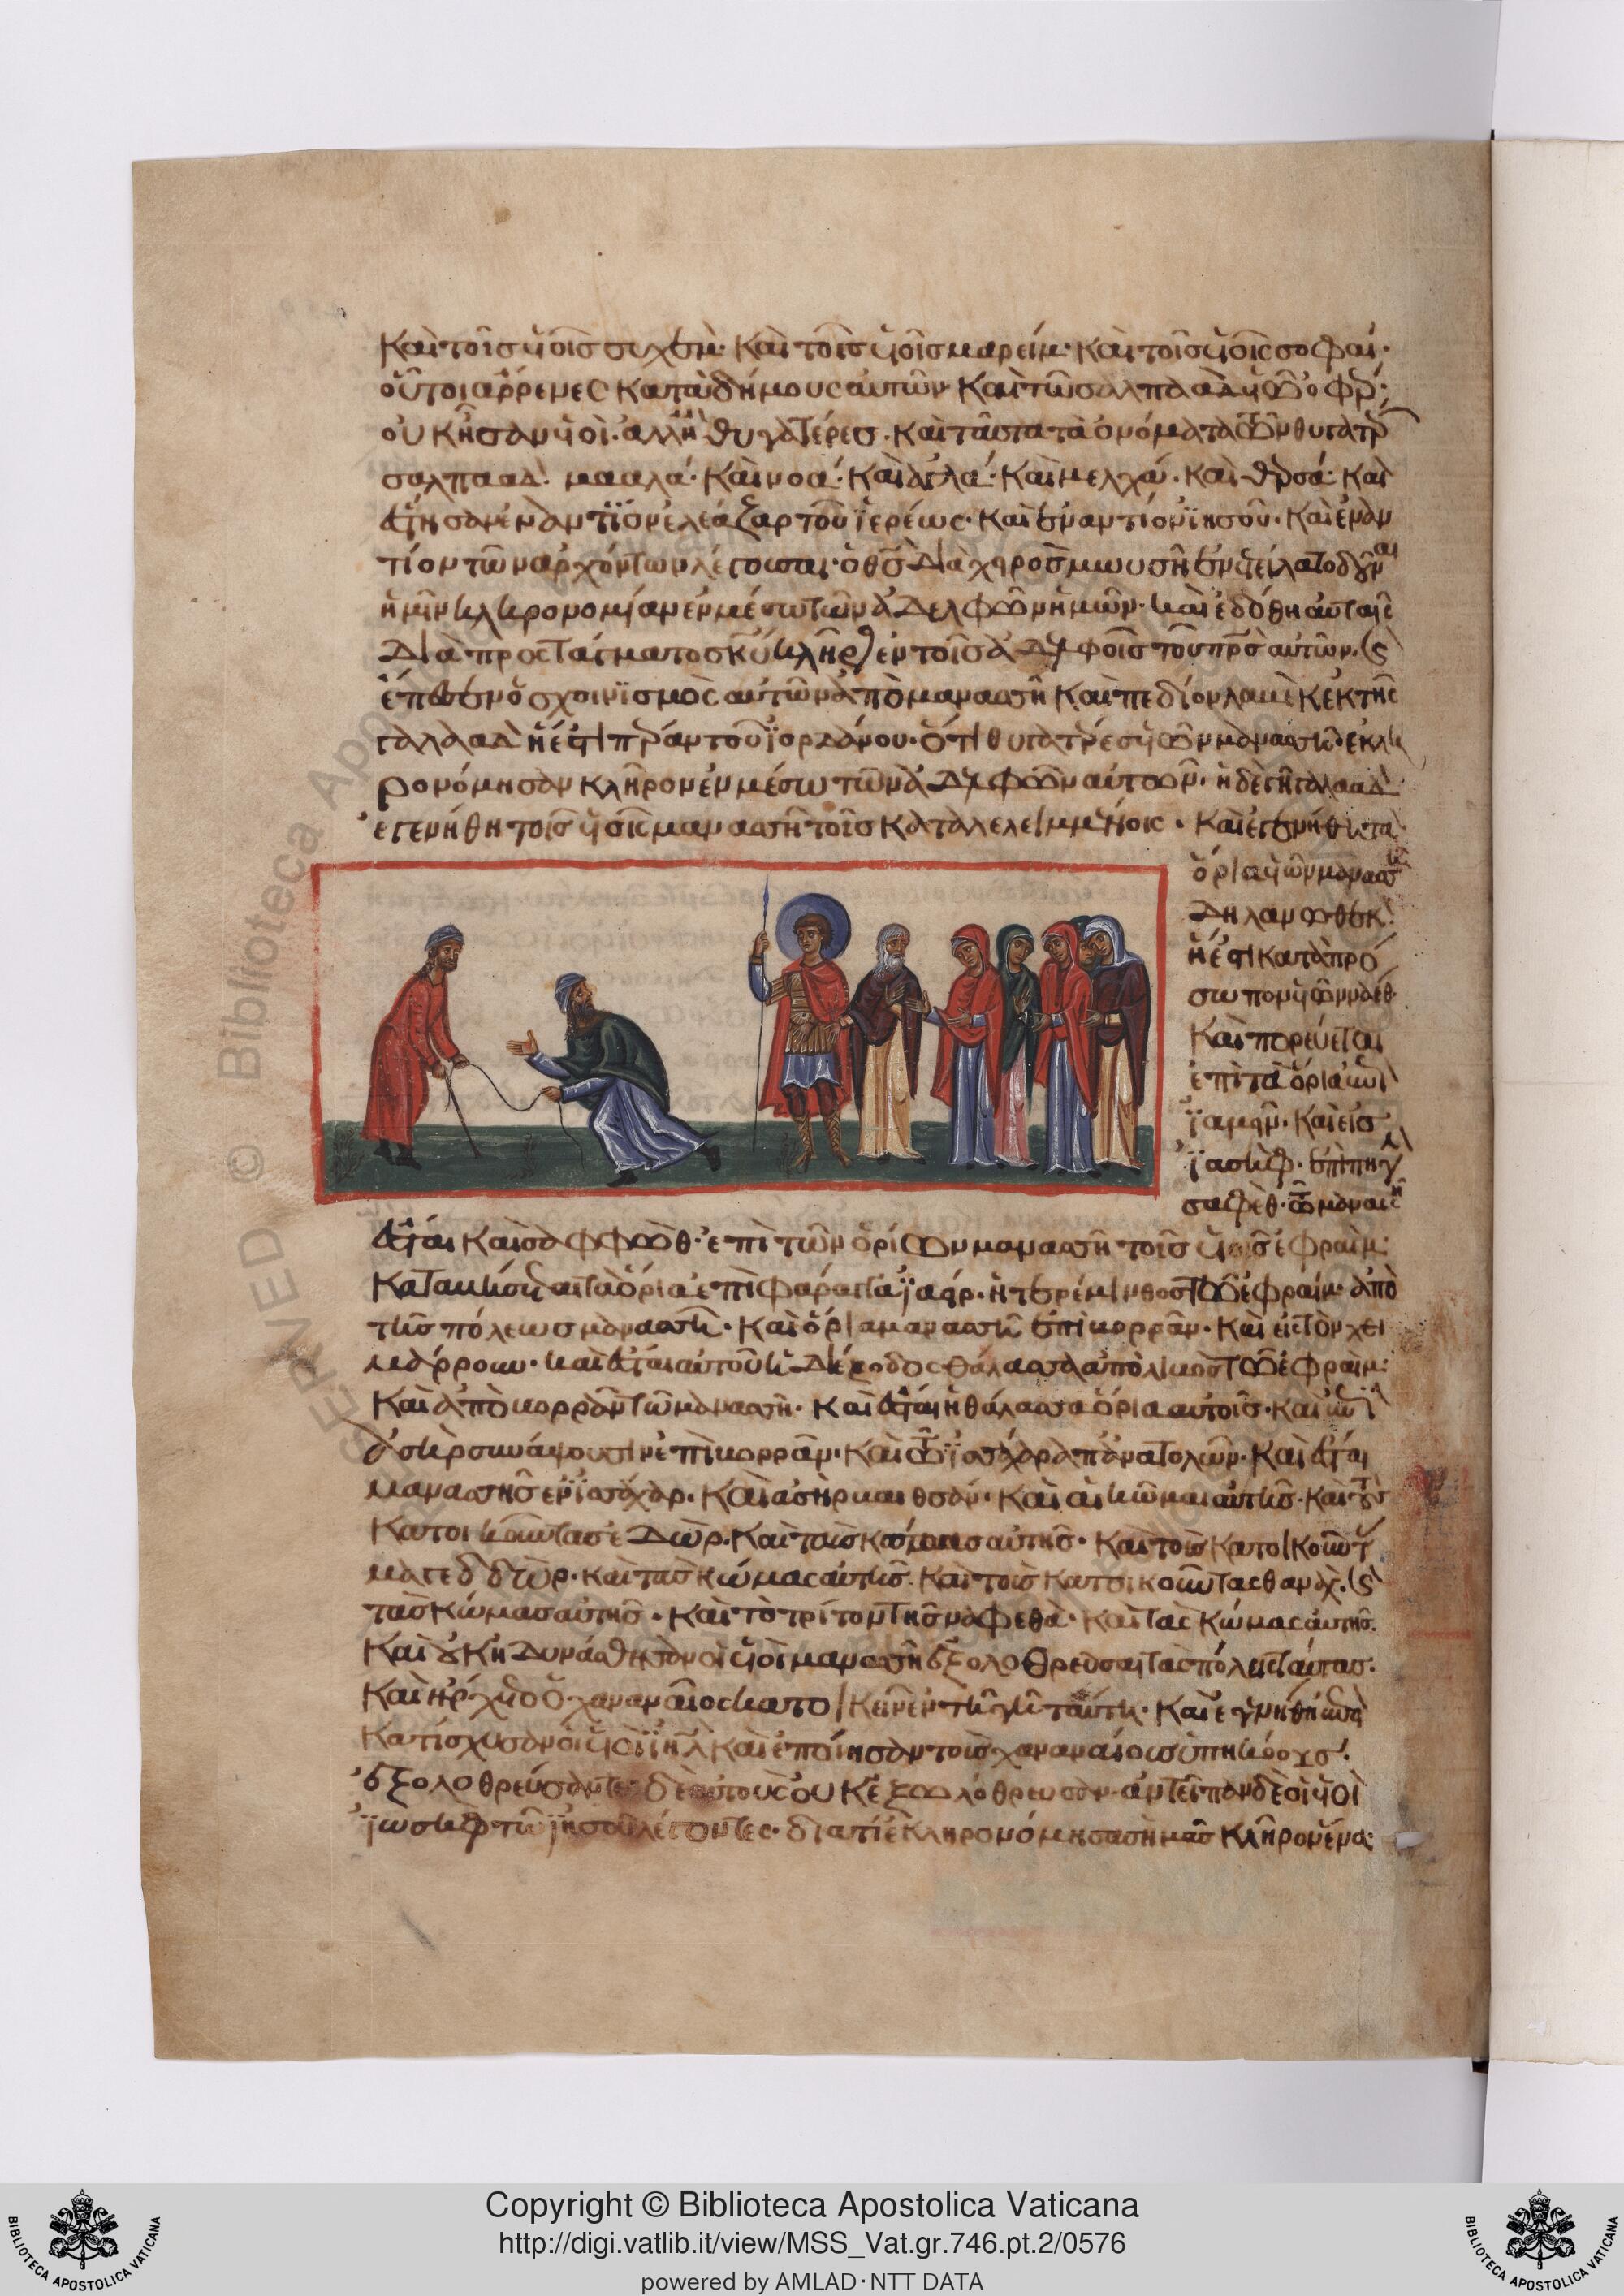 Καὶ τοῖς υἱοῖς συχεμ· Καὶ τοῖς υἱοῖς μαρείμ· Καὶ τοῖς υἱοῖς σοφαί·
οὗτοι ἄρρενες Κατὰ δήμους αὐτῶν· Καὶ τῶ σαλπαὰδ υἱῶ οφρ
οὐκ ἦσαν υἱοὶ· ἀλλ' ἢ θυγατέρες· Καὶ ταῦτα τὰ ὀνόματα τῶν θυγατρ
σαλπααδ· μααλά· Καὶ νοά· Καὶ αἰγλά· Καὶ μελχά· Καὶ θερσά· Καὶ
ἔστησαν ἐναντίον ἐλεάζαρ τοῦ ϊερέως· Καὶ ἐναντίον ϊησοῦ· Καὶ ἐναν
τίον τῶν ἀρχόντων λέγουσαι· ὁ θς διὰ χειρὸς μωυσῆ ἐνετείλατο δοῦναι
ἡμῖν κληρονομίαν ἐν μέσω τῶν ἀδελφῶν ἡμῶν· καὶ ἐδόθη αὐταῖς
διὰ προστάγματος κυ κλῆρ ἐν τοῖς ἀδελφοῖς τοῦ πρς αὐτῶν· ϛ
ἔπεσεν ὁ σχοινϊσμὸς αὐτῶν ἀπὸ μανασσῆ Καὶ πεδίον λαμὲκ ἐκ τῆς
γαλαὰδ ἥ ἐστι πέραν τοῦ ϊορδάνου· ὅτι θυγατρες υἱῶν μανασσῆ· ἐκλη
ρονόμησαν κλῆρον ἐν μέσω τῶν ἀδελφῶν αὐτῶν· ἡ δὲ γῆ γαλαὰδ
ἐγενήθη τοῖς υἱοῖς μανασσῆ τοῖς καταλελειμμένοις· Καὶ ἐγενήθη τὰ
ὅρια υἱῶν μανασσῆ
δηλανωθεκ·
ἥ ἐστι κατὰ πρό
σωπον υἱῶν ναέθ·
Καὶ πορεύεται
ἐπὶ τὰ ὅρια
ϊαμειν· Καὶ εἰς
ϊασὴφ· ἐπὶ πηγ
σαφὲθ· τῶ μανασσῆ
ἔσται Καὶ σαφφῶθ· ἐπὶ τῶν ὁρίων μανασσῆ τοῖς υἱοῖς ἐφραΐμ·
Καταβήσεται τὰ ὅρια ἐπὶ φάραγγα ϊαειρ· ἡ τερέμινθος τῶ ἐφραΐμ· ἀπὸ
τῆς πόλεως μανασσῆ· Καὶ ὅρια μανασσῆ ἐπὶ βορρᾶν· Καὶ εἰς τὸν χει
μάρρουν· καὶ ἔσται αὐτοῦ ἡ διέξοδος θάλασσα ἀπὸ λιβὸς τῶ ἐφραΐμ·
Καὶ ἀπὸ βορρᾶν τῶ μανασσῆ· Καὶ ἔσται ἡ θάλασσα ὅρια αὐτοῖς· Καὶ
ἀσὴρ συνάψουσιν ἐπὶ βορρᾶν· Καὶ τῶ ϊσάχαρ ἀπ' ἀνατολῶν· Καὶ ἔσται
μανασσῆς ἐν ϊσάχαρ· Καὶ ἀσὴρ βαιθσάν· Καὶ αἱ κῶμαι αὐτῆς· Καὶ τοὺς
Κατοικοῦντας ἐδώρ· Καὶ τὰς κώμας αὐτῆς· Καὶ τοὺς κατοικοῦντ
μαγεδδώρ· καὶ τὰς κώμας αὐτῆς· Καὶ τοὺς κατοικοῦντας θανάχ· ϛ
τὰς κώμας αὐτῆς· Καὶ τὸ τρίτον τῆς ναφεθὰ· Καὶ τὰς κώμας αὐτῆς·
Καὶ οὐκ ἠδυνάσθησαν οἱ υἱοὶ μανασσῆ ἐξολοθρεῦσαι τὰς πόλεις ταύτας·
Καὶ ἤρχετο ὁ χαναναῖος κατοικεῖν ἐν τῆ γῆ ταύτη· Καὶ ἐγενήθη
Κατίσχυσαν οἱ υἱοὶ ϊηλ Καὶ ἐποίησαν τοὺς χαναναίους ὑπηκόους·
ἐξολοθρεύσαντες δὲ αὐτοὺς οὐκ ἐξωλόθρευσαν· ἀντεῖπαν δὲ οἱ υἱοὶ
ϊωσὴφ τῶ ϊησοῦ λέγοντες· διατί ἐκληρονόμησας ἡμᾶς κλῆρον ἕνα·
Copyright © Biblioteca Apostolica Vaticana
http://digi.vatlib.it/view/MSS_Vat.gr.746.pt.2/0576
powered by AMLAD·NTT DATA
BIBLIOTECA APOSTOLICA VATICANA
BIBLIOTECA APOSTOLICA VATICANA